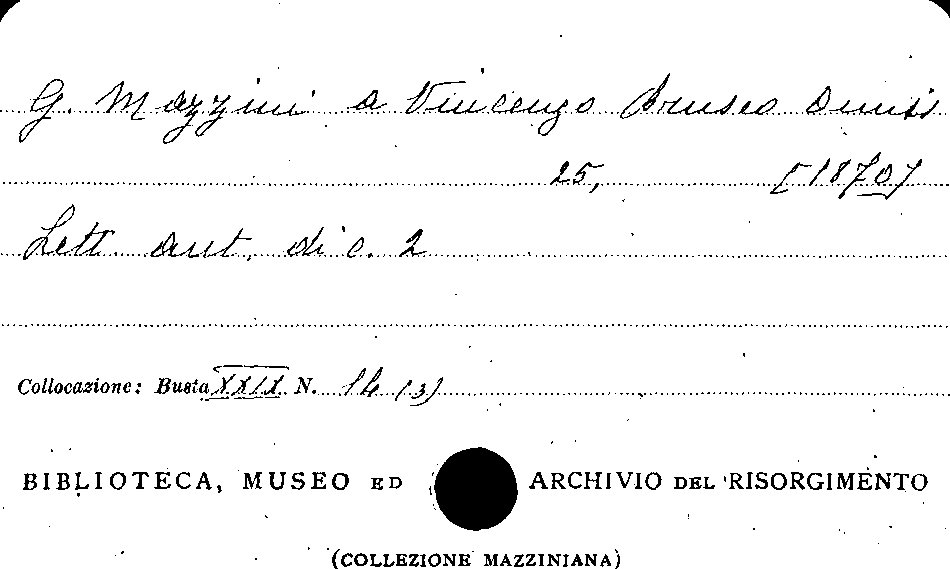 G. Mazzini a Vincenzo Brusco Onnis
25, [1870]
Lett. aut. di c. 2
Collocazione: Busta XXIX N. 14 (3)
BIBLIOTECA, MUSEO ED ARCHIVIO DEL RISORGIMENTO
(COLLEZIONE MAZZINIANA)